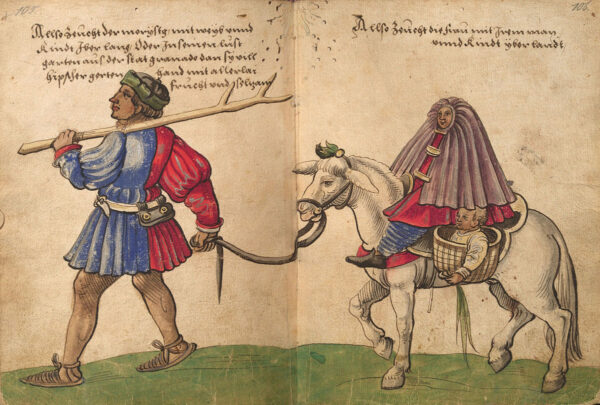 105
Allso Zeucht der morysig mit weyb vnnd
Kindt Jber lang Oder Jn seinem lust
garten aus der stat granada dan sy vill
hipscher gerten hand mit allerlai
frucht vnd
106
Allso Zeucht die frau mit Jrem man
vnnd Kindt yber landt